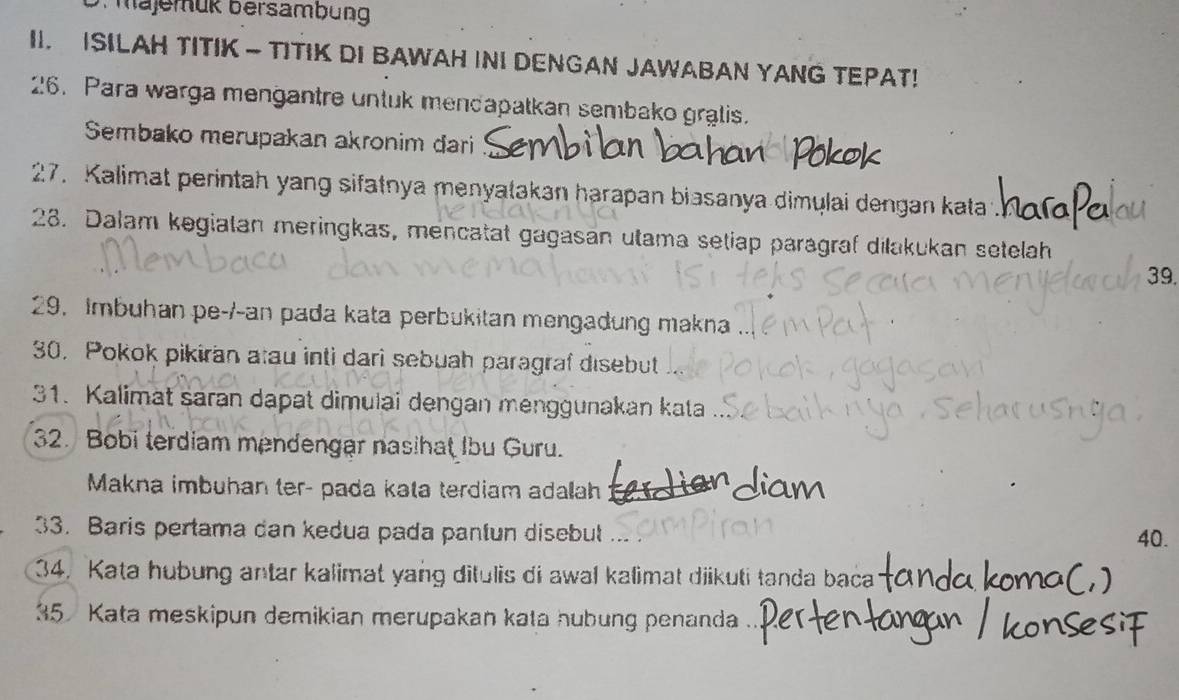 majemuk bersambung
II. ISILAH TITIK - TITIK DI BAWAH INI DENGAN JAWABAN YANG TEPAT!
26. Para warga mengantre untuk mendapatkan sembako gratis.
Sembako merupakan akronim dari ... Sembilan bahan Pokok
27. Kalimat perintah yang sifatnya menyatakan harapan biasanya dimulai dengan kata ... harapalau
hendaknya
28. Dalam kegiatan meringkas, mencatat gagasan utama setiap paragraf dilakukan setelah
... Membaca dan memahami isi teks secara menyeluruh
39.
29. Imbuhan pe-/-an pada kata perbukitan mengadung makna ... Tempat .
30. Pokok pikiran atau inti dari sebuah paragraf disebut ... Ide pokok, gagasan
utama, kalimat penjelas
31. Kalimat saran dapat dimulai dengan menggunakan kata ... Sebaiknya, seharusnya.
lebih baik, hendaknya
32. Bobi terdiam mendengar nasihat Ibu Guru.
Makna imbuhan ter- pada kata terdiam adalah diam
33. Baris pertama dan kedua pada pantun disebut ... . Sampiran
40.
34. Kata hubung antar kalimat yang ditulis di awal kalimat diikuti tanda baca tanda koma (,)
35. Kata meskipun demikian merupakan kata hubung penanda ... Pertentangan / konsesif